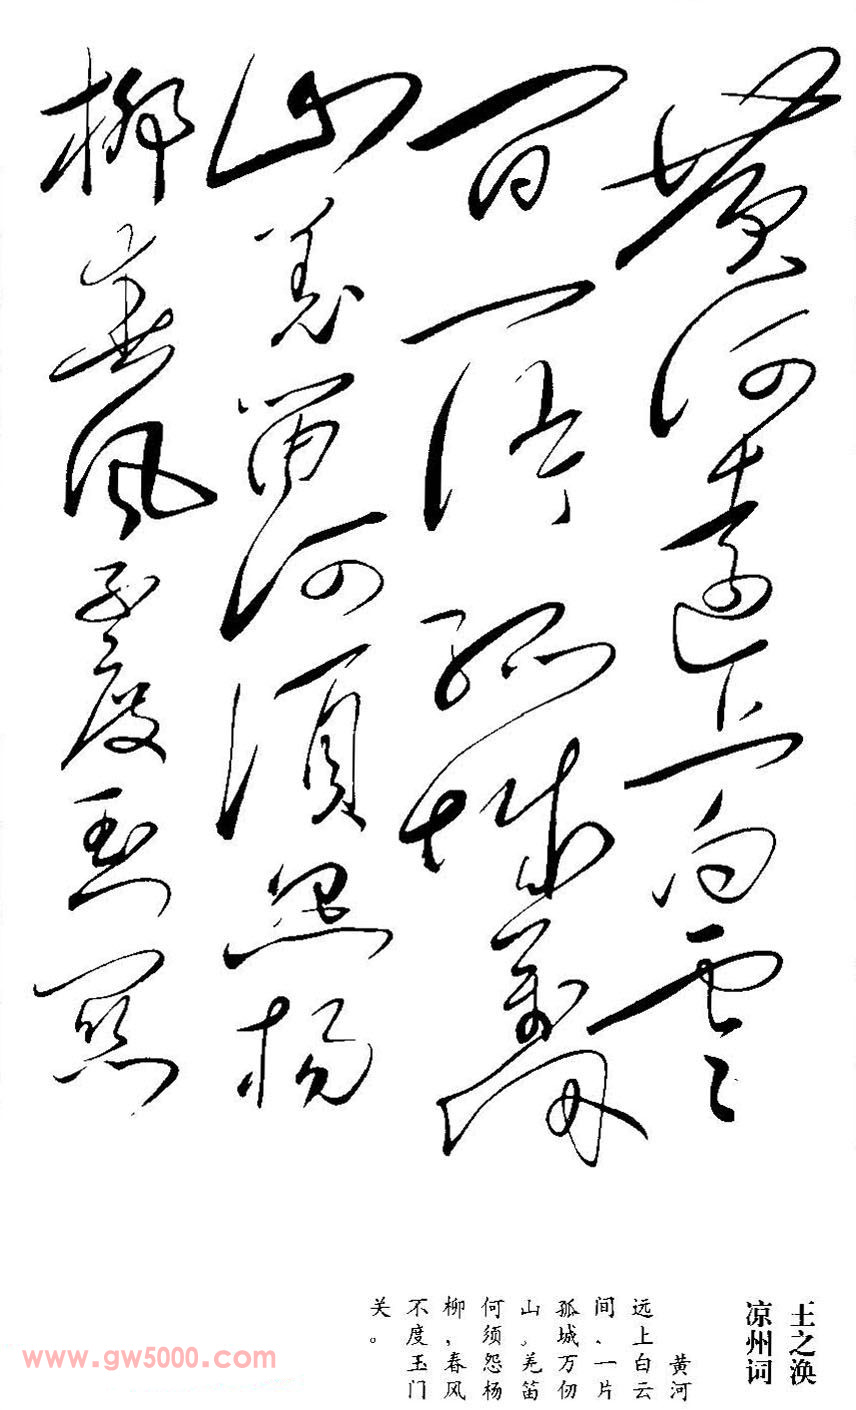 黄河遠上白雲
間一片孤城萬仞
山羌笛何須怨楊
柳春風不度玉門關
王之涣
凉州词
黄河
远上白云
间、一片
孤城万仞
山。羌笛
何须怨杨
柳，春风
不度玉门
关。
www.gw5000.com